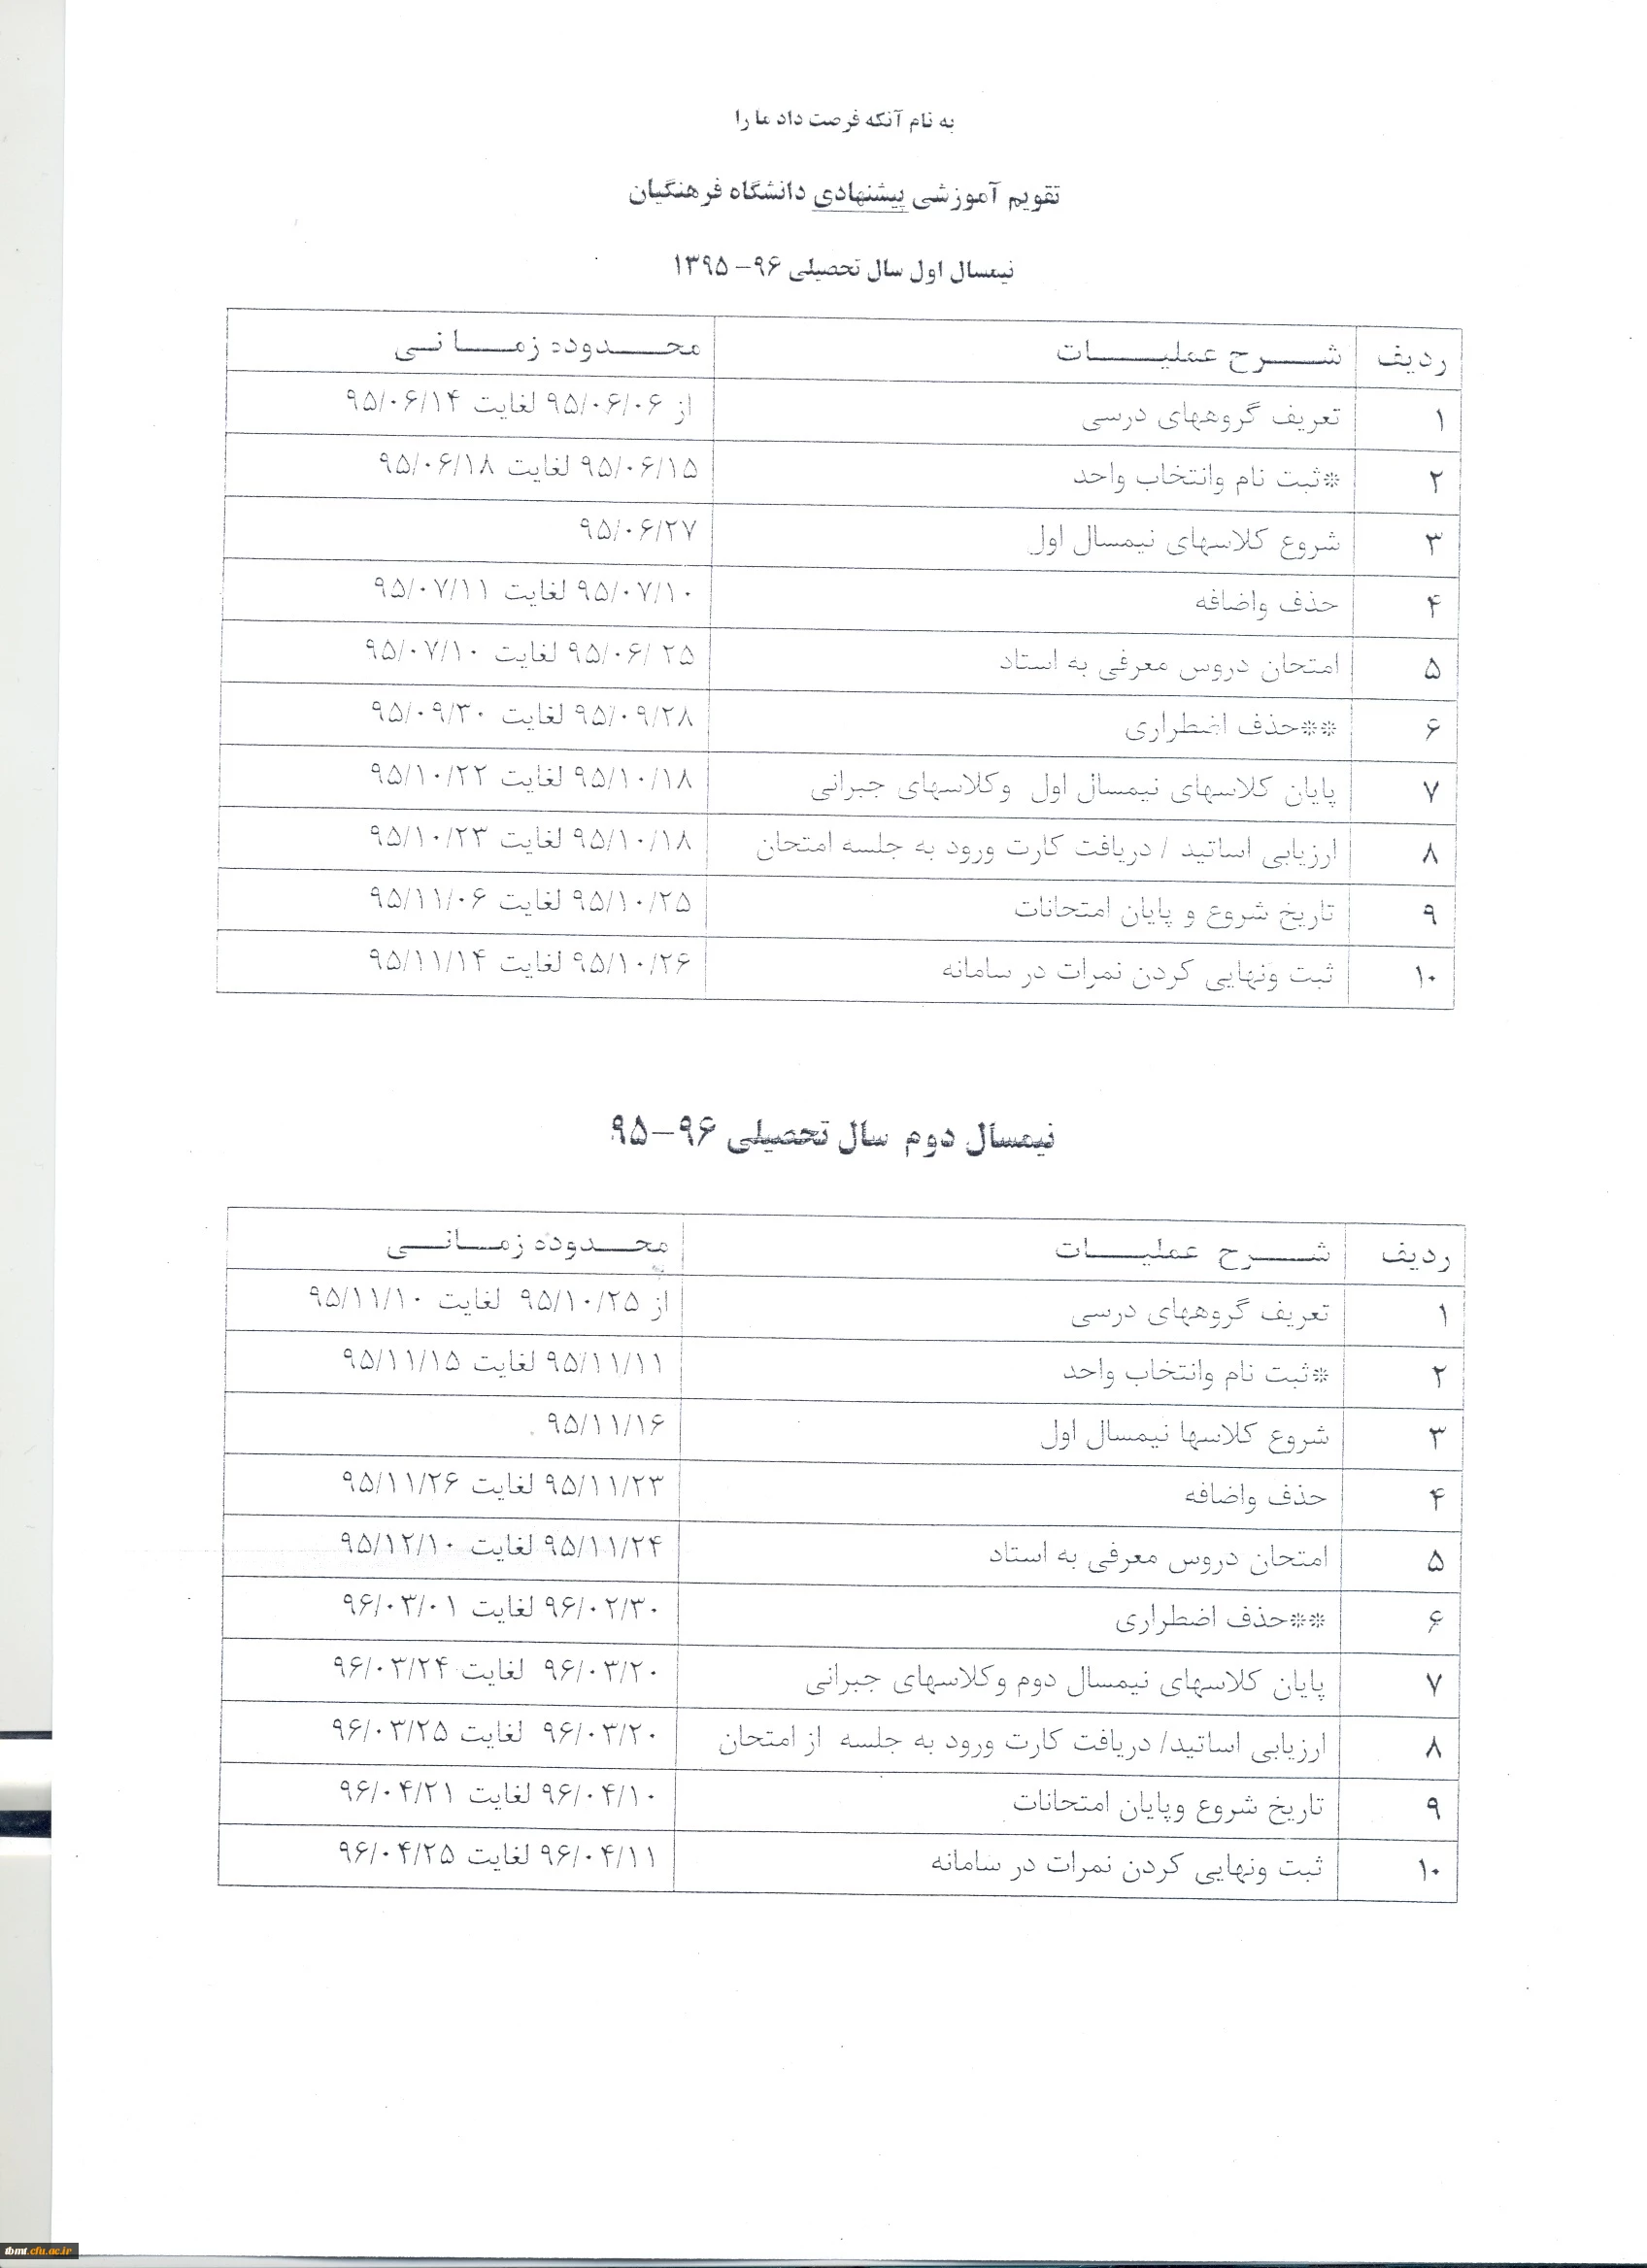 به نام آنکه فرصت داد ما را
تقویم آموزشی پیشنهادی دانشگاه فرهنگیان
نیمسال اول سال تحصیلی ۹۶- ۱۳۹۵
ردیف شــــرح عملیــــات محــــدوده زمــــانی
۱ تعریف گروههای درسی از ۹۵/۰۶/۰۶ لغایت ۹۵/۰۶/۱۴
۲ *ثبت نام وانتخاب واحد ۹۵/۰۶/۱۵ لغایت ۹۵/۰۶/۱۸
۳ شروع کلاسهای نیمسال اول ۹۵/۰۶/۲۷
۴ حذف واضافه ۹۵/۰۷/۱۰ لغایت ۹۵/۰۷/۱۱
۵ امتحان دروس معرفی به استاد ۹۵/۰۶/ ۲۵ لغایت ۹۵/۰۷/۱۰
۶ **حذف اضطراری ۹۵/۰۹/۲۸ لغایت ۹۵/۰۹/۳۰
۷ پایان کلاسهای نیمسال اول وکلاسهای جبرانی ۹۵/۱۰/۱۸ لغایت ۹۵/۱۰/۲۲
۸ ارزیابی اساتید / دریافت کارت ورود به جلسه امتحان ۹۵/۱۰/۱۸ لغایت ۹۵/۱۰/۲۳
۹ تاریخ شروع و پایان امتحانات ۹۵/۱۰/۲۵ لغایت ۹۵/۱۱/۰۶
۱۰ ثبت ونهایی کردن نمرات در سامانه ۹۵/۱۰/۲۶ لغایت ۹۵/۱۱/۱۴
نیمسال دوم سال تحصیلی ۹۶-۹۵
ردیف شــــرح عملیــــات محــــدوده زمــــانــــی
۱ تعریف گروههای درسی از ۹۵/۱۰/۲۵ لغایت ۹۵/۱۱/۱۰
۲ *ثبت نام وانتخاب واحد ۹۵/۱۱/۱۱ لغایت ۹۵/۱۱/۱۵
۳ شروع کلاسها نیمسال اول ۹۵/۱۱/۱۶
۴ حذف واضافه ۹۵/۱۱/۲۳ لغایت ۹۵/۱۱/۲۶
۵ امتحان دروس معرفی به استاد ۹۵/۱۱/۲۴ لغایت ۹۵/۱۲/۱۰
۶ **حذف اضطراری ۹۶/۰۲/۳۰ لغایت ۹۶/۰۳/۰۱
۷ پایان کلاسهای نیمسال دوم وکلاسهای جبرانی ۹۶/۰۳/۲۰ لغایت ۹۶/۰۳/۲۴
۸ ارزیابی اساتید/ دریافت کارت ورود به جلسه از امتحان ۹۶/۰۳/۲۰ لغایت ۹۶/۰۳/۲۵
۹ تاریخ شروع وپایان امتحانات ۹۶/۰۴/۱۰ لغایت ۹۶/۰۴/۲۱
۱۰ ثبت ونهایی کردن نمرات در سامانه ۹۶/۰۴/۱۱ لغایت ۹۶/۰۴/۲۵
tbmt.cfu.ac.ir